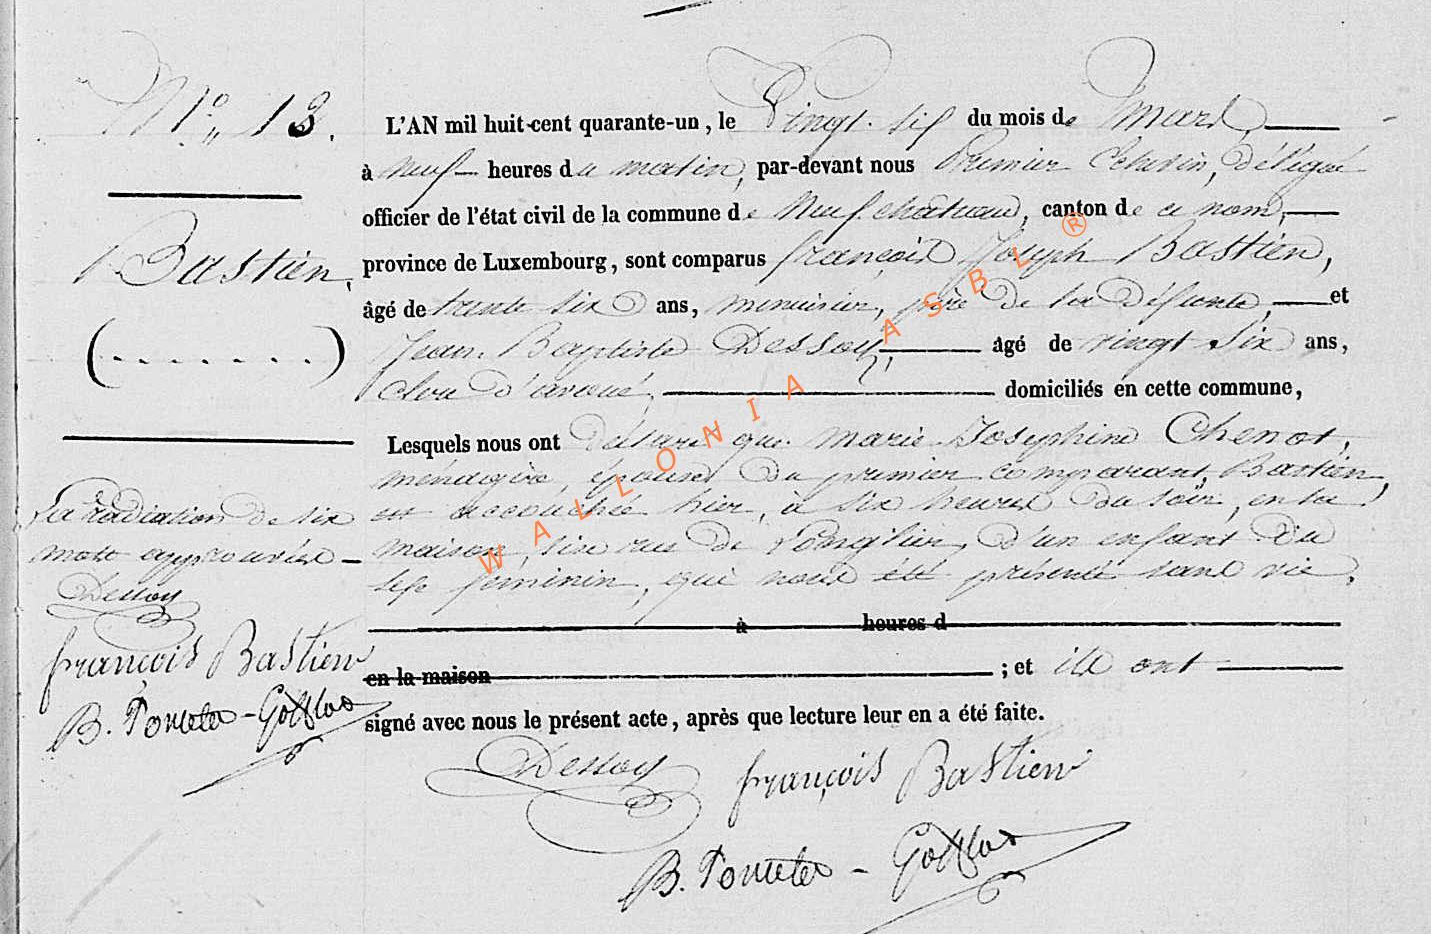 N° 13.
Bastien,
(.......)
La radiation de six
mots approuvée —
Dessoy
françois Bastien
B. Poncelet - Gofflot
L'AN mil huit-cent quarante-un, le Vingt-six du mois de mars,
à neuf heures du matin, par-devant nous Premier Echevin, délégué
officier de l'état civil de la commune de Neufchateau, canton de ce nom,
province de Luxembourg, sont comparus françois Joseph Bastien,
âgé de trente six ans, menuisier, père de la défunte, et
Jean-Baptiste Dessoy, âgé de vingt six ans,
clerc d'avoué, domiciliés en cette commune,
Lesquels nous ont déclaré que Marie Josephine Chenot,
ménagère, épouse du premier comparant, Bastien,
est accouchée hier, à six heures du soir, en sa
maison, sise rue de Longlier, d'un enfant du
sexe féminin, qui nous été présenté sans vie,
à heures d
en la maison ; et ils ont
signé avec nous le présent acte, après que lecture leur en a été faite.
Dessoy françois Bastien
B. Poncelet - Gofflot
WALLONIA ASBL ®